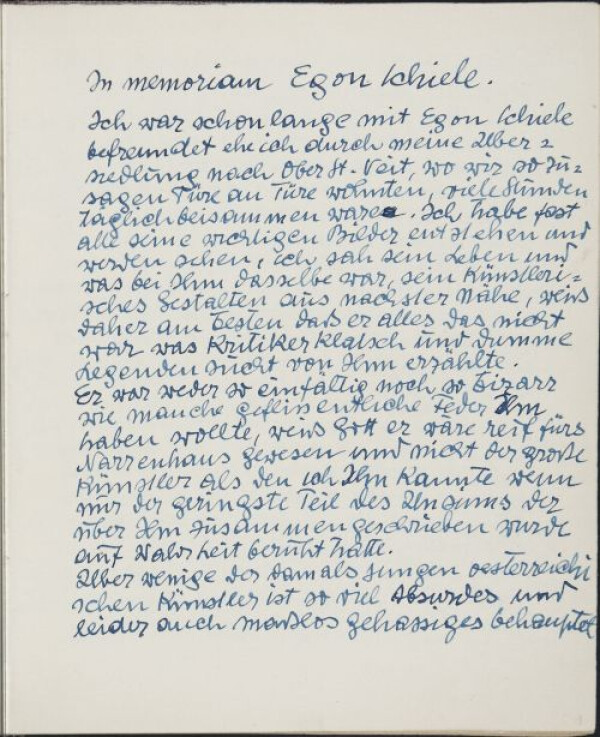 In memoriam Egon Schiele.
Ich war schon lange mit Egon Schiele
befreundet ehe ich durch meine Über=
siedlung nach Ober St. Veit, wo wir so zu=
sagen Türe an Türe wohnten, viele Stunden
täglich beisammen waren. Ich habe fast
alle seine wichtigen Bilder entstehen und
werden sehen, ich sah sein Leben und
was bei Ihm dasselbe war, sein Künstleri=
sches Gestalten aus nachster Nähe, weiss
daher am besten dass er alles das nicht
war was Kritikerklatsch und dumme
Legendensucht von Ihm erzählte.
Er war weder so einfältig noch so bizarr
wie manche geflissentliche Feder Ihm
haben wollte, weiss Gott er wäre reif fürs
Narrenhaus gewesen und nicht der große
Künstler als den ich Ihn kannte wenn
nur der geringste Teil des Unsums der
über Ihm zusammengeschrieben wurde
auf Wahrheit beruht hätte.
Über wenige der damals jungen oesterreichi
schen Künstler ist so viel Absurdes und
leider auch masslos gehässiges behauptet